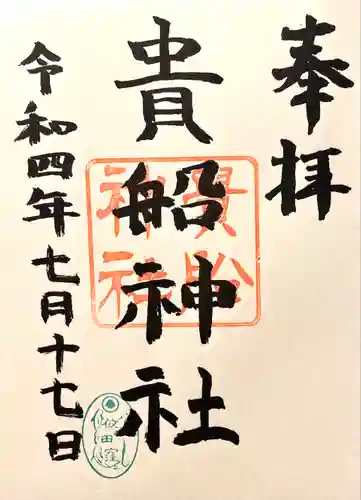 奉拝
貴船神社
令和四年七月十七日
貴船
神社